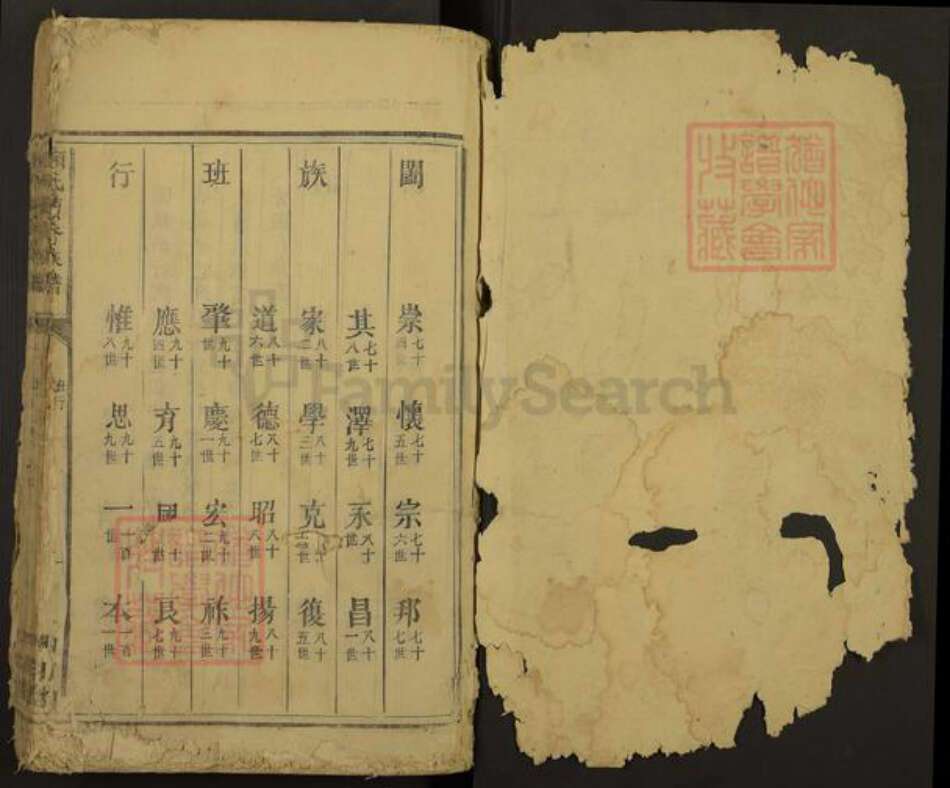 闔族班行
崇七十四世 懷七十五世 宗七十六世 邦七十七世
其七十八世 澤七十九世 永八十世 昌八十一世
家八十二世 學八十三世 克八十四世 復八十五世
道八十六世 德八十七世 昭八十八世 揚八十九世
肇九十世 慶九十一世 宏九十二世 祚九十三世
應九十四世 育九十五世 九十世 良九十七世
惟九十八世 思九十九世 一一百世 本一百一世
FamilySearch
譜學會
收藏